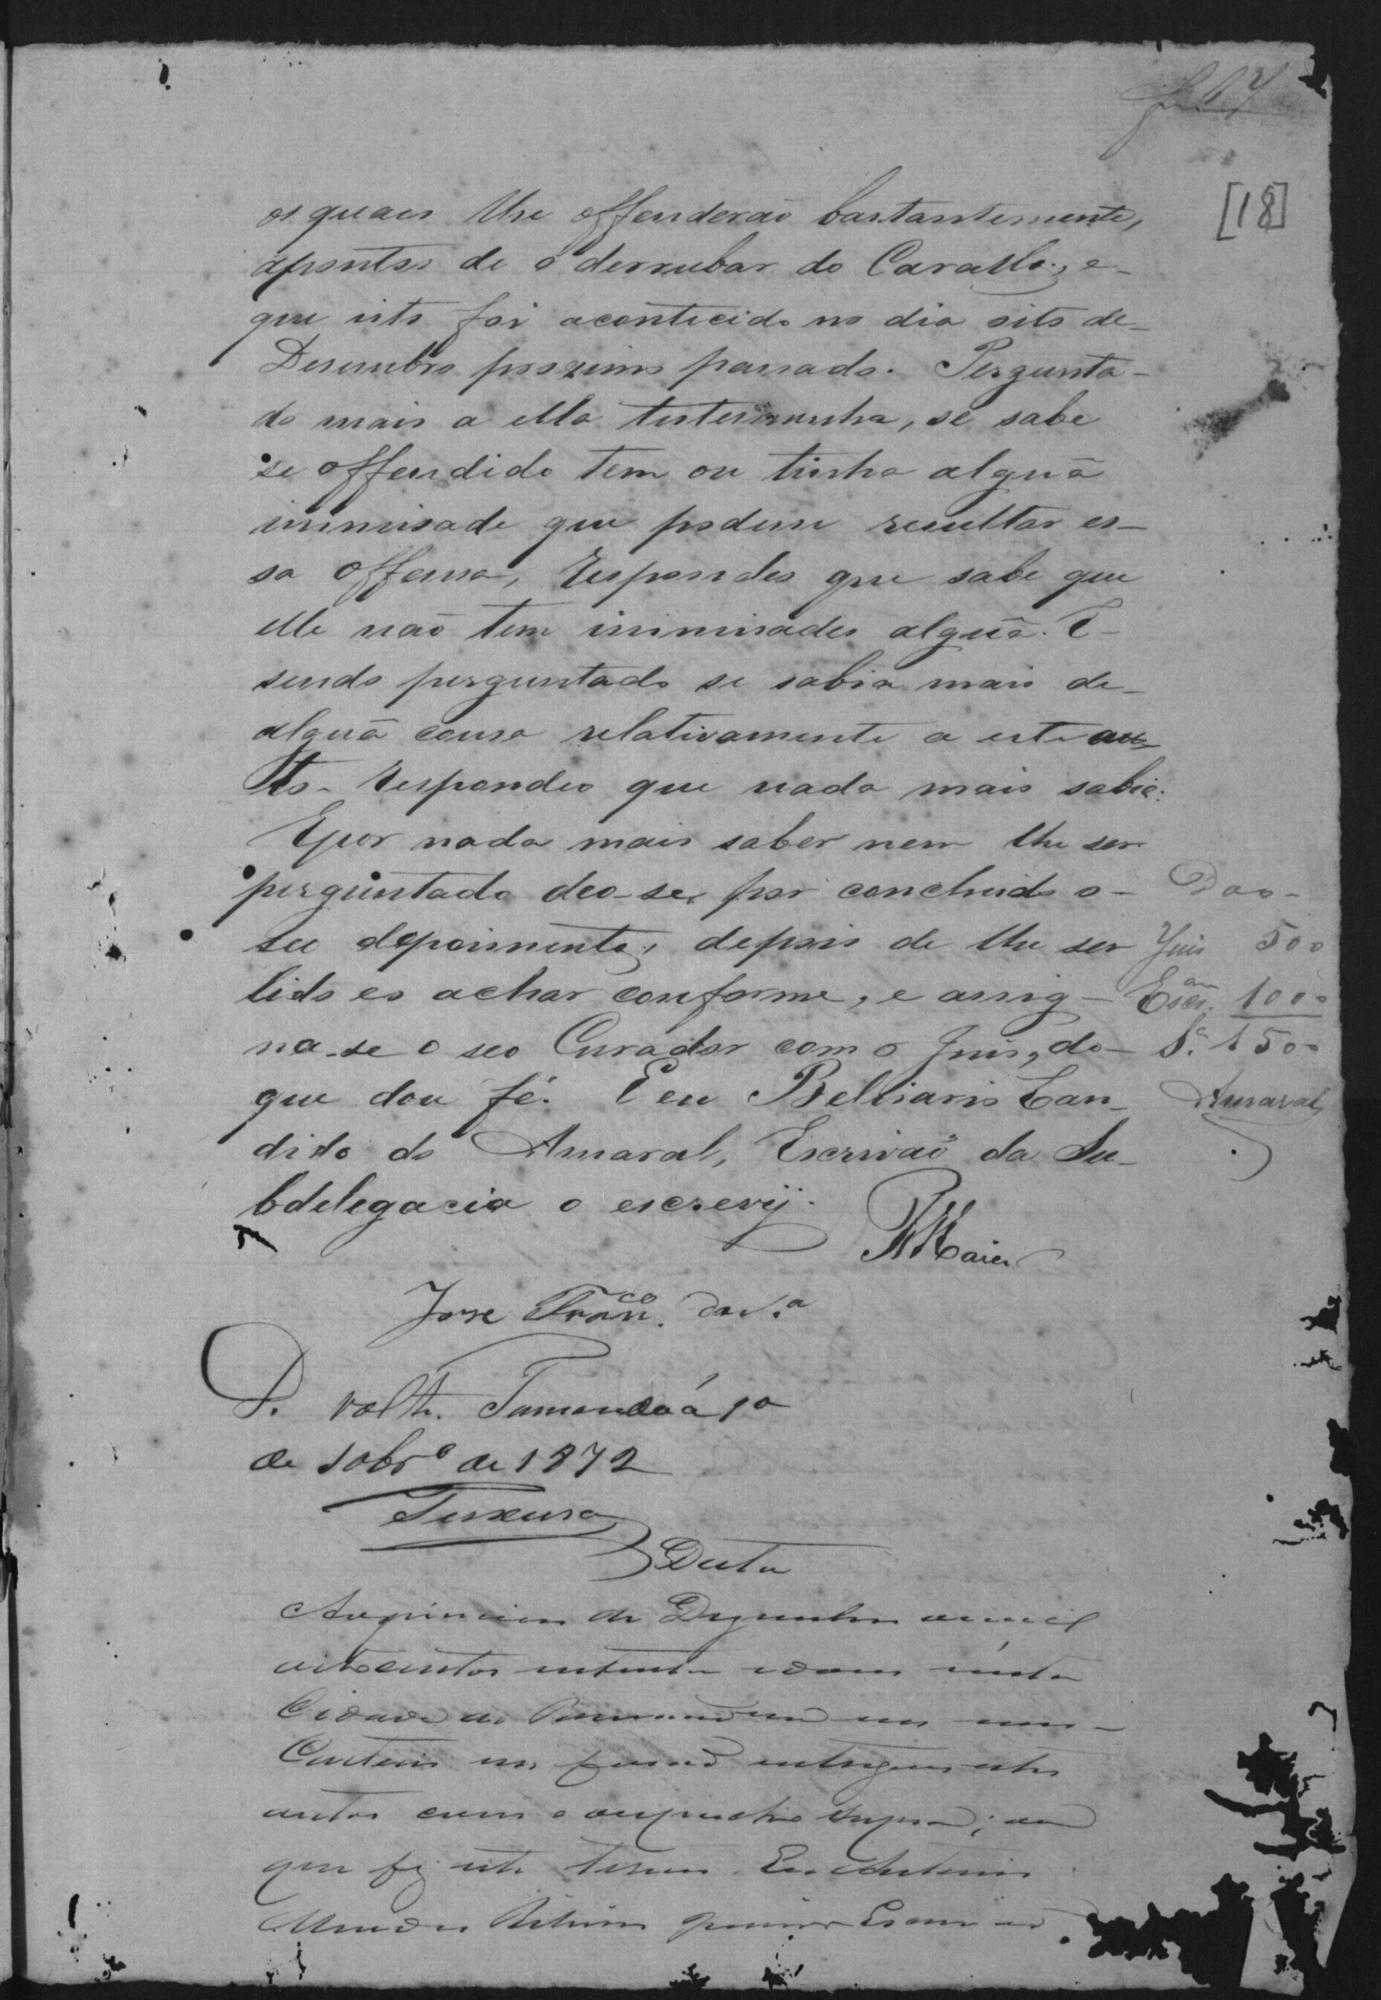 [18]
os quaes lhe offenderaõ bastantemente,
apontos de o derrubar do Cavallo, e
que isto foi acontecido no dia oito de
Desembro proximo passado. Pergunta-
do mais a ella testemunha, se sabe
se offendido tem ou tinha alguã
inimisade que podesse resultar es-
sa offensa, Respondeo que sabe que
elle naõ tem inimisades alguã. E
sendo perguntado se sabia mais de
alguã cousa relativamente a este au-
to. Respondeo que nada mais sabia.
E por nada mais saber nem lhe ser
perguntado deo-se por concluido o
seu depoimento, depois de lhe ser
lido e o achar conforme, e assig-
na-se o seo Curador com o Juis, do
que dou fé. E eu Belisario Can-
dido do Amaral, Escrivaõ da Su-
bdelegacia o escrevij.
Juis 500
Escr.am 1000
S.ª 1500
Amaral
Jose Fran.co
D. volt. Tamandoá 10
de 10br.o de 1872
Teixeira
Data
de Dezembro de mil
oitocentos setenta e dous nesta
Cidade de em meu
Cartorio me foraõ entregues estes
autos com o despacho supra; do
que fiz este termo. Eu Antonio
Mendes Ribeiro Escrivaõ